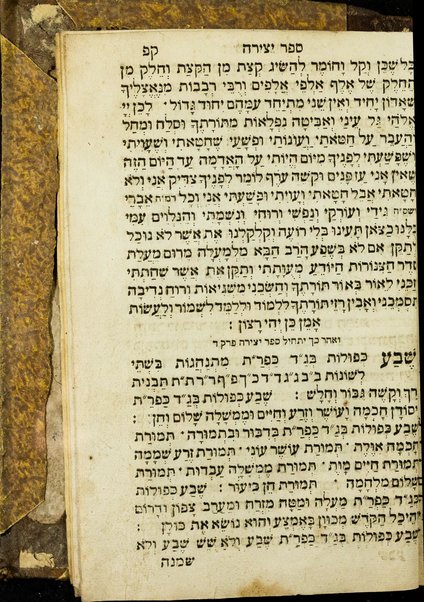 ספר יצירה
קפ
בל שכן וקל וחומר להשיג קצת מן הקצת וחלק מן
החלק של אלף אלפי אלפים ורבי רבבות מנאצליך
שאדון יחיד ואין שני מתיחד עמהם יחוד גדול׃ לכן יי
אלהי גל עיני ואביטה נפלאות מתורתך וסלח ומחל
והעבר על חטאתי ועונותי ופשעי שחטאתי ושעויתי
ושפשעתי לפניך מיום היותי על האדמה עד היום הזה
שאין אני עז פנים וקשה ערף לומר לפניך צדיק אני ולא
חטאתי אבל חטאתי ועויתי ופשעתי אני וכל
גידי ועורקי ונפשי ורוחי ונשמתי והנלוים עמי
כלנו כצאן תעינו בלי רועה וקלקלנו את אשר לא נוכל
לתקן אם לא בשפע הרב הבא מלמעלה מרום מעלת
סדר הצנורות היודע מעותתי ותקן את אשר שחתתי
וזכני לאור באור תורתך וחשכני משגיאות ורוח נדיבה
תסמכני ואבין רזי תורתך ללמוד וללמד לשמור ולעשות
אמן כן יהי רצון׃
ואחר כך יתחיל ספר יצירה פרק ד
שבע כפולות בג״ד כפר״ת מתנהגות בשתי
לשונות ב״ב ג״ג ד״ד כ״ך פ״ף ר״ר ת״ת תבנית
רך וקשה גבור וחלש׃ שבע כפולות בג״ד כפר״ת
יסודן חכמה ועושר וזרע וחיים וממשלה שלום וחן׃
שבע כפולות בג״ד כפר״ת בדבור ובתמורה׃ תמורת
חכמה אולת׃ תמורת עושר עוני׃ תמורת זרע שממה
תמורת חיים מות׃ תמורת ממשלה עבדות׃ תמורת
שלום מלחמה׃ תמורת חן כיעור׃ שבע כפולות
בג״ד כפר״ת מעלה ומטה מזרח ומערב צפון ודרום
והיכל הקדש מכוון באמצע והוא נושא את כולן׃
שבע כפולות בג״ד כפר״ת שבע ולא שש שבע ולא
שמנה